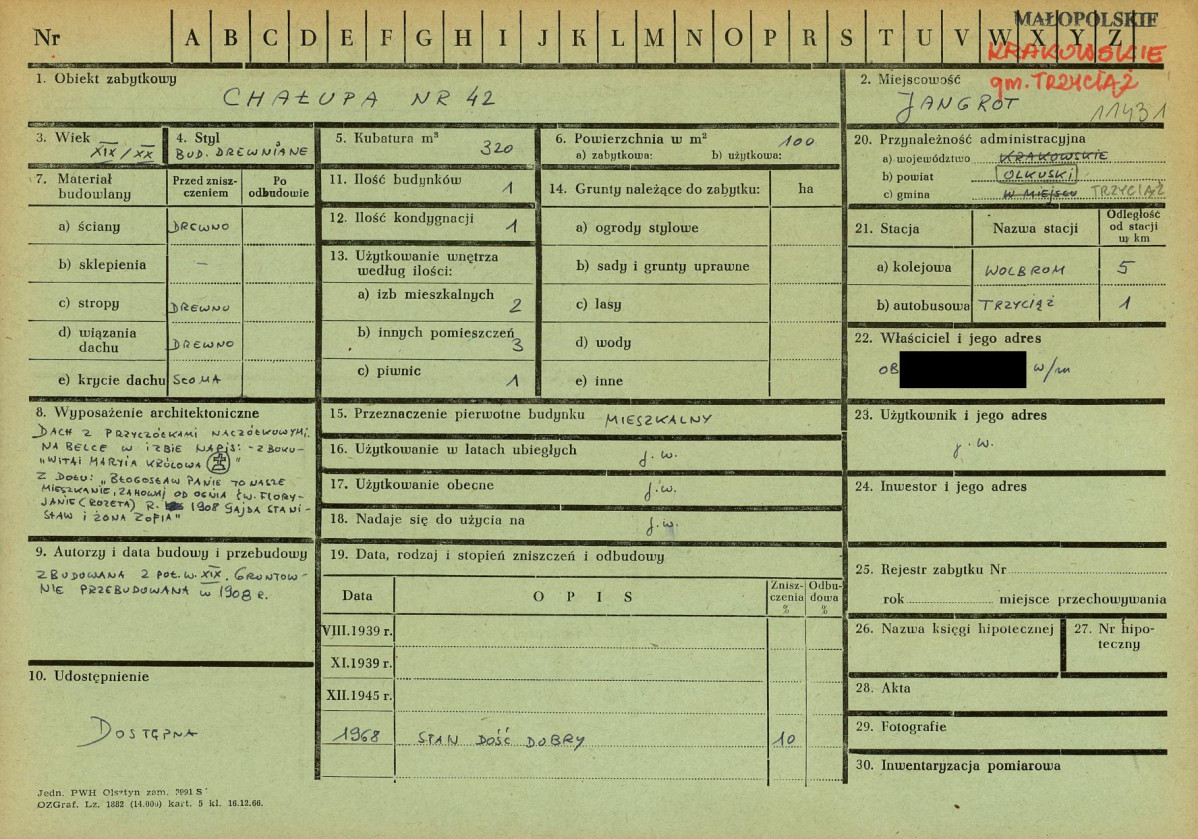 Nr
A B C D E F G H I J K L M N O P R S T U V W X Y Z
MAŁOPOLSKIE
KRAKOWSKIE
gm. TRZYCIĄŻ
1. Obiekt zabytkowy
CHAŁUPA NR 42
2. Miejscowość
JANGROT
11431
3. Wiek
XIX/XX
4. Styl
BUD. DREWNIANE
5. Kubatura m³
320
6. Powierzchnia w m²
100
a) zabytkowa: b) użytkowa:
7. Materiał budowlany
Przed zniszczeniem
Po odbudowie
a) ściany DREWNO
b) sklepienia –
c) stropy DREWNO
d) wiązania dachu DREWNO
e) krycie dachu SŁOMA
8. Wyposażenie architektoniczne
DACH Z PRZYCZÓŁKAMI NACZÓŁKOWYMI.
NA BELCE W IZBIE NAPIS: - Z BOKU -
„WITAJ MARYIA KRÓLOWA "
Z DOŁU: „BŁOGOSŁAW PANIE TO NASZE
MIESZKANIE, ZAHOWAJ OD OGNIA ŚW. FLORY-
JANIE (ROZETA) R. 1908 GAJDA STANI-
SŁAW I ŻONA ZOFIA"
9. Autorzy i data budowy i przebudowy
ZBUDOWANA 2 POŁ. W. XIX. GRUNTOW-
NIE PRZEBUDOWANA W 1908 R.
10. Udostępnienie
DOSTĘPNA
11. Ilość budynków 1
12. Ilość kondygnacji 1
13. Użytkowanie wnętrza według ilości:
a) izb mieszkalnych 2
b) innych pomieszczeń 3
c) piwnic 1
14. Grunty należące do zabytku: ha
a) ogrody stylowe
b) sady i grunty uprawne
c) lasy
d) wody
e) inne
15. Przeznaczenie pierwotne budynku MIESZKALNY
16. Użytkowanie w latach ubiegłych j. w.
17. Użytkowanie obecne j.w.
18. Nadaje się do użycia na j.w.
19. Data, rodzaj i stopień zniszczeń i odbudowy
Data
OPIS
Zniszczenia %
Odbudowa %
VIII.1939 r.
XI.1939 r.
XII.1945 r.
1968 STAN DOŚĆ DOBRY 10
20. Przynależność administracyjna
a) województwo KRAKOWSKIE
b) powiat OLKUSKI
c) gmina W MIEJSCU TRZYCIĄŻ
21. Stacja
Nazwa stacji
Odległość od stacji w km
a) kolejowa WOLBROM 5
b) autobusowa TRZYCIĄŻ 1
22. Właściciel i jego adres
OB w/m
23. Użytkownik i jego adres
j. w.
24. Inwestor i jego adres
25. Rejestr zabytku Nr
rok miejsce przechowywania
26. Nazwa księgi hipotecznej
27. Nr hipoteczny
28. Akta
29. Fotografie
30. Inwentaryzacja pomiarowa
Jedn. PWH Olsztyn zam. 3991 S
OZGraf. Lz. 1882 (14.000) kart. 5 kl. 16.12.66.